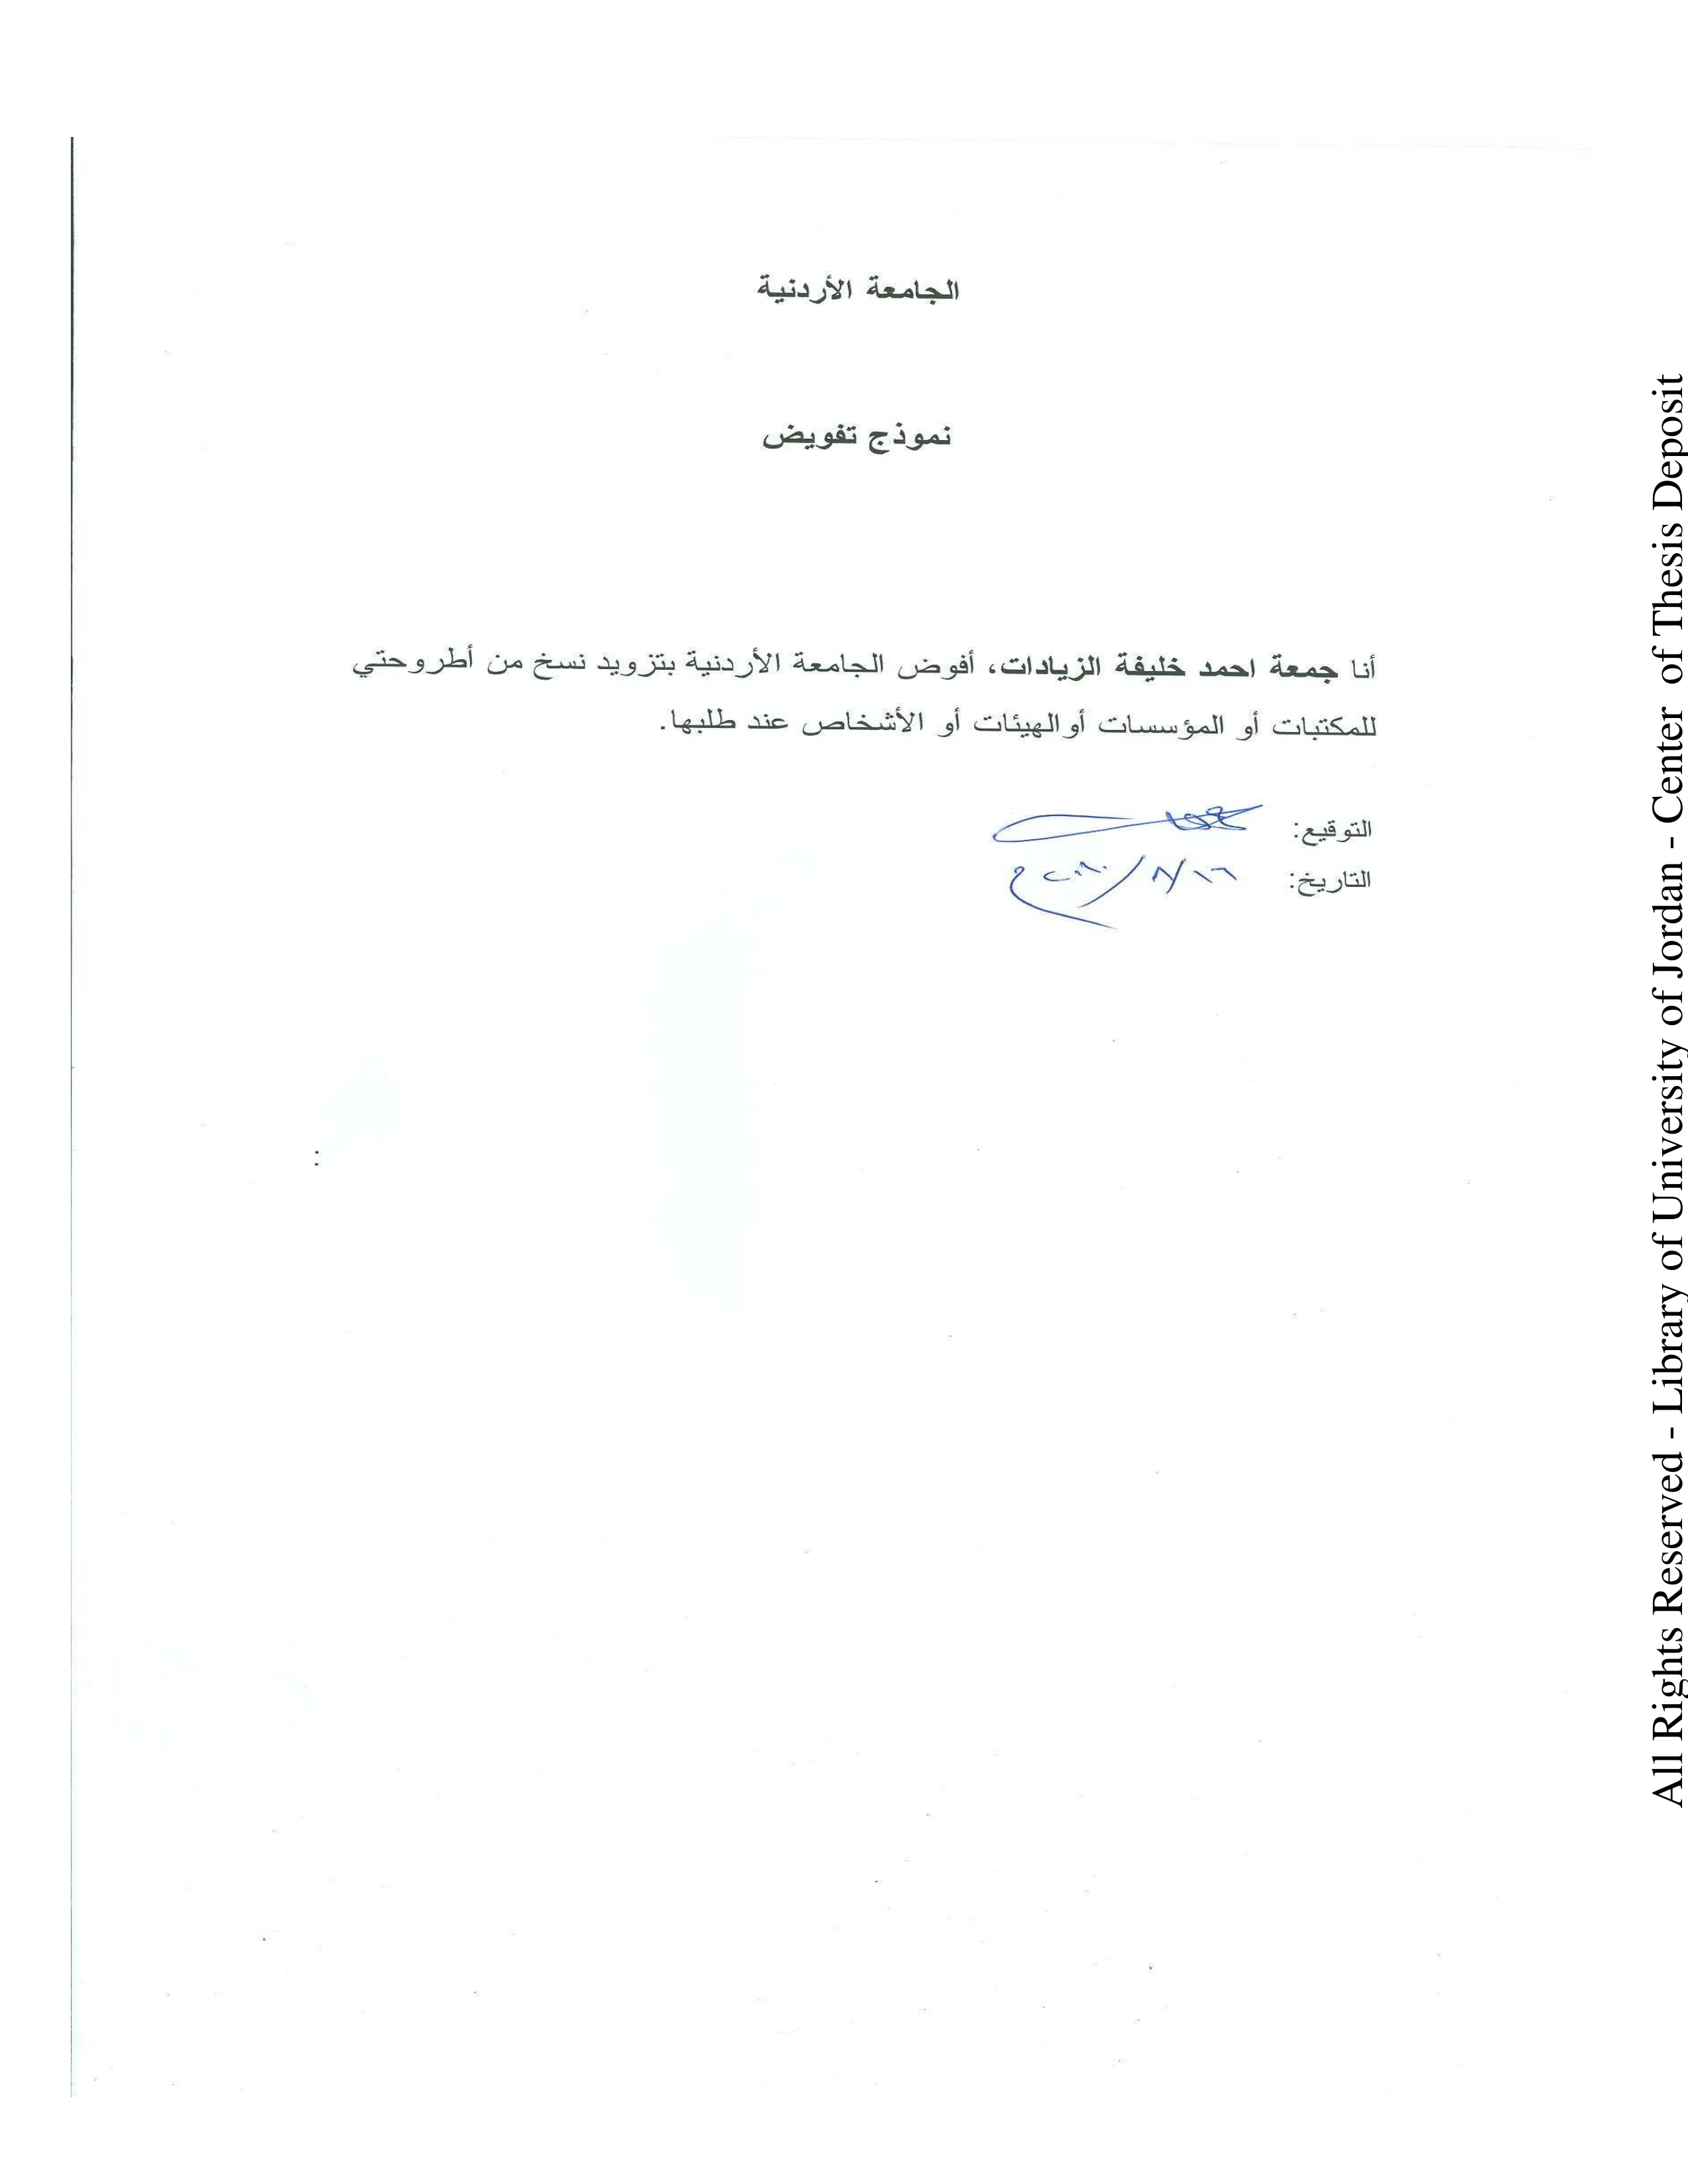 الجامعة الأردنية
نموذج تفويض
أنا جمعة احمد خليفة الزيادات، أفوض الجامعة الأردنية بتزويد نسخ من أطروحتي
للمكتبات أو المؤسسات أو الهيئات أو الأشخاص عند طلبها.
التوقيع:
التاريخ: ١٦/٨/٢٠١٠م
All Rights Reserved - Library of University of Jordan - Center of Thesis Deposit